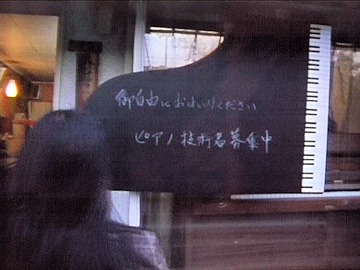 御自由にお入りください
ピアノ技術者募集中